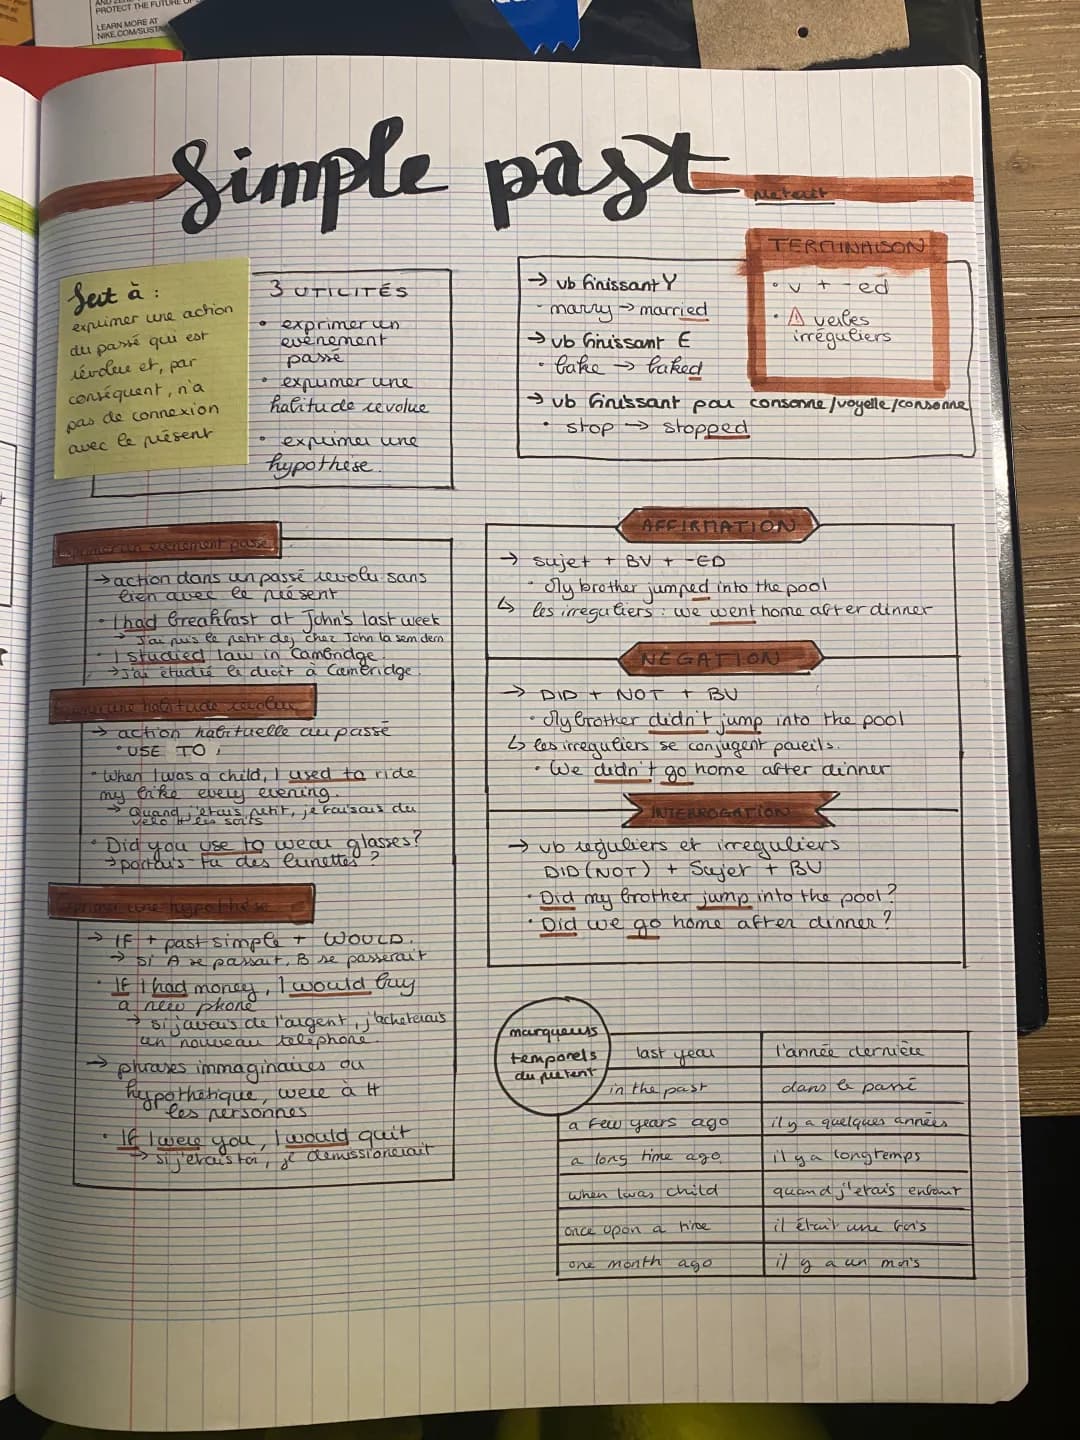 PROTECT THE FUTURE OF
LEARN MORE AT
NIKE.COM/SUSTAI
Simple past
Sert à :
exprimer une action
du passé qui est
révolue et, par
conséquent, n'a
pas de connexion
avec le présent
3 UTILITÉS
• exprimer un
evènement
passé
• exprimer une
habitude revolue
• exprimer une
hypothèse.
→ vb finissant Y
- marry → married
→ vb finissant E
• bake → baked
→ vb finissant par consonne/voyelle/consonne
• stop → stopped
TERMINAISON
• v + -ed
• ⚠ verbes
irréguliers
exprimer un evenement passé
→ action dans un passé revolu sans
lien avec le présent
• I had breakfast at John's last week
→ J'ai pris le petit dej chez John la sem dern
• I studied law in Cambridge.
→ J'ai étudié le droit à Cambridge.
une habitude revolue
→ action habituelle au passé
• USE TO
• When I was a child, I used to ride
my bike every evening.
→ Quand j'étais petit, je faisais du
vélo tt les soirs
• Did you use to wear glasses?
→ portais-tu des lunettes ?
une hypothèse
→ IF + past simple + WOULD.
→ si A se passait, B se passerait
• If I had money, I would buy
a new phone
→ si j'avais de l'argent, j'acheterais
un nouveau telephone.
→ phrases immaginaires ou
hypothetique, were à tt
les personnes
• If I were you, I would quit
→ si j'etais toi, je demissionerait
AFFIRMATION
→ sujet + BV + -ED
• My brother jumped into the pool
↳ les irreguliers : we went home after dinner
NEGATION
→ DID + NOT + BV
• My brother didn't jump into the pool
↳ les irreguliers se conjugent pareils.
• We didn't go home after dinner
INTERROGATION
→ vb reguliers et irreguliers
DID (NOT) + Sujet + BV
• Did my brother jump into the pool?
• Did we go home after dinner?
marqueurs
temporels
du preterit
last year l'année dernière
in the past dans le passé
a few years ago il y a quelques années
a long time ago il y a longtemps
when I was child quand j'etais enfant
once upon a time il était une fois
one month ago il y a un mois